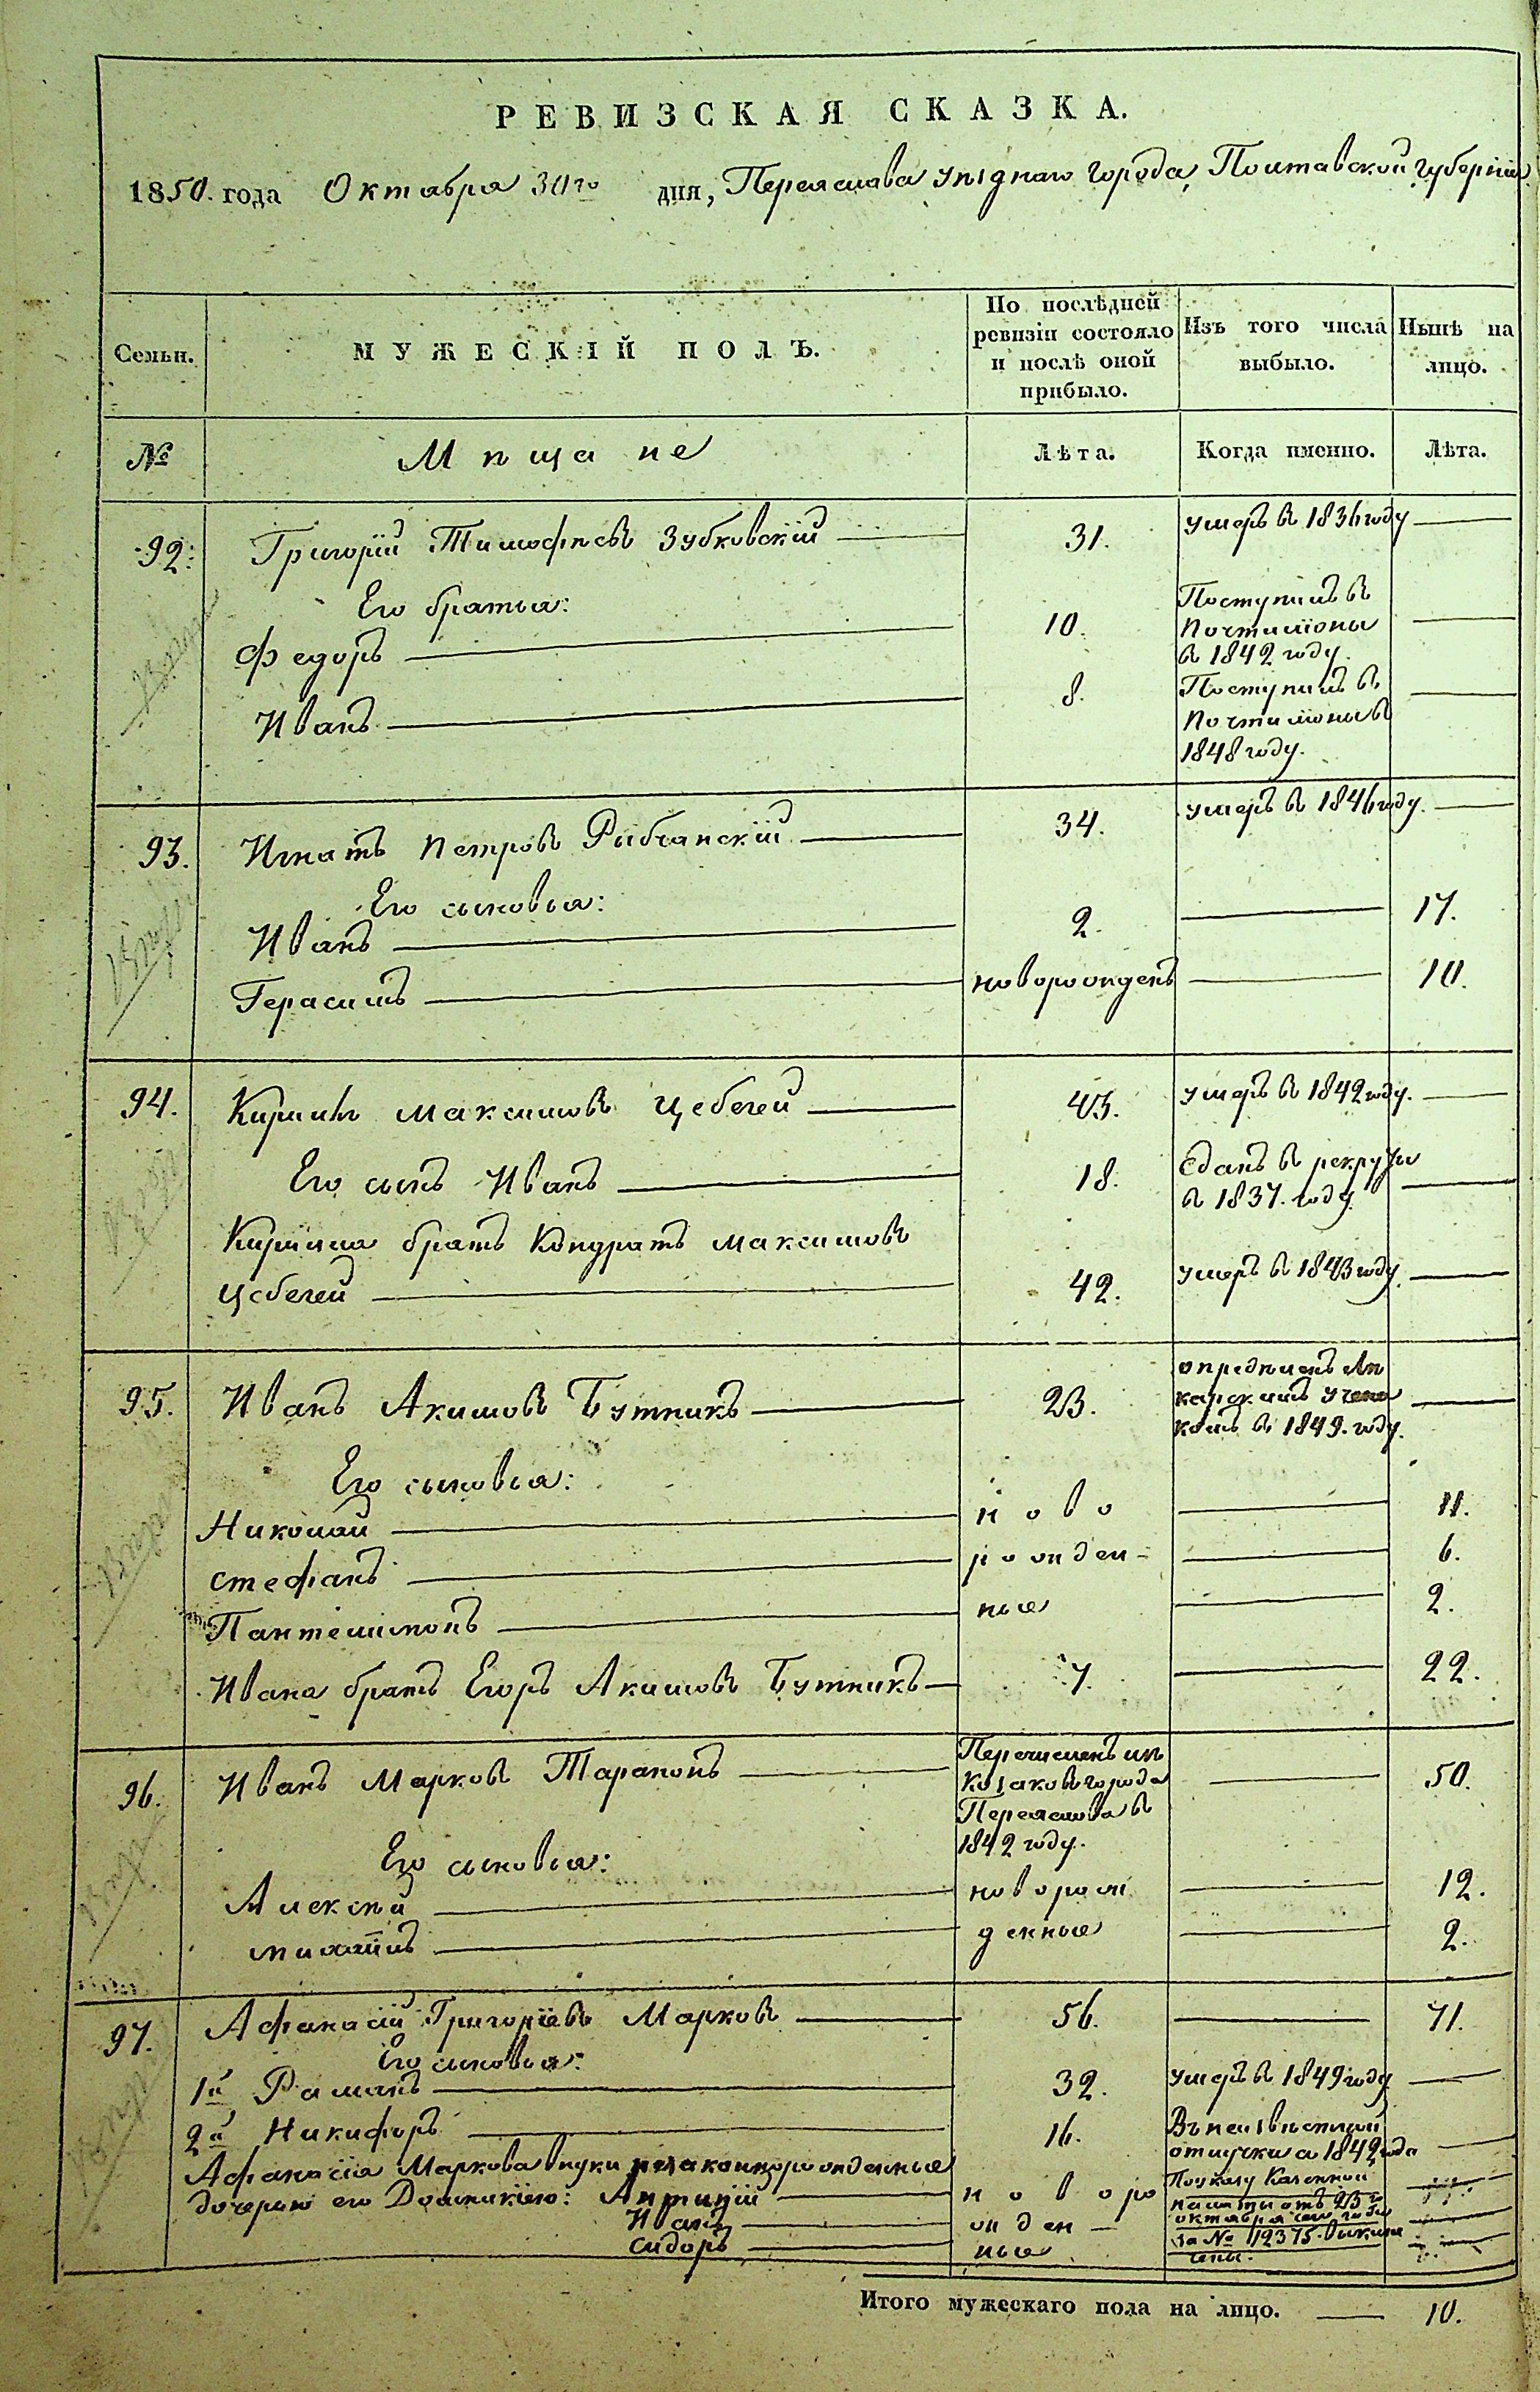 РЕВИЗСКАЯ СКАЗКА.
1850. года Октября 30го дня, Переяслава уѣзднаго города, Полтавской губерніи
Семьи. МУЖЕСКІЙ ПОЛЪ. По послѣдней ревизіи состояло и послѣ оной прибыло. Изъ того числа выбыло. Нынѣ на лицо.
№ Мѣщане Лѣта. Когда именно. Лѣта.
92. Григорій Тимофѣевъ Зубковскій 31. умеръ въ 1836 году
Его братья:
Федоръ 10. Поступилъ въ почтиліоны въ 1842 году.
Иванъ 8. Поступилъ въ почтиліоны въ 1848 году.
93. Игнатъ Петровъ Рибчанскій 34. умеръ въ 1846 году.
Его сыновья:
Иванъ 2. 17.
Герасимъ новорожденъ 10.
94. Кирилъ Максимовъ Цебегей 43. умеръ въ 1842 году.
Его сынъ Иванъ 18. Сданъ въ рекруты въ 1837. году.
Кирила братъ Кондратъ Максимовъ
Цебегей 42. умеръ въ 1843 году.
95. Иванъ Акимовъ Бутникъ 23. опредѣленъ Лѣкарскимъ ученикомъ въ 1849. году.
Его сыновья:
Николай ново 11.
Стефанъ рожден- 6.
Пантелимонъ ные 2.
Ивана братъ Егоръ Акимовъ Бутникъ 7. 22.
96. Иванъ Марковъ Таранонъ Перечисленъ изъ козаковъ города Переяслова въ 1842 году. 50.
Его сыновья:
Алексѣй новорож 12.
Михаилъ денные 2.
97. Афанасій Григоріевъ Марковъ 56. 71.
Его сыновья:
1й Раманъ 32. умеръ въ 1849 году
2й Никифоръ 16. Въ неизвѣстной отлучки с 1842 года
Афанасія Маркова внуки незаконнорожденные
дочерью его Домникіею: новорожденные По указу Казенной палаты отъ 23го октября сего года за № 12375. выключены.
Иванъ
Сидоръ
Итого мужескаго пола на лицо. 10.